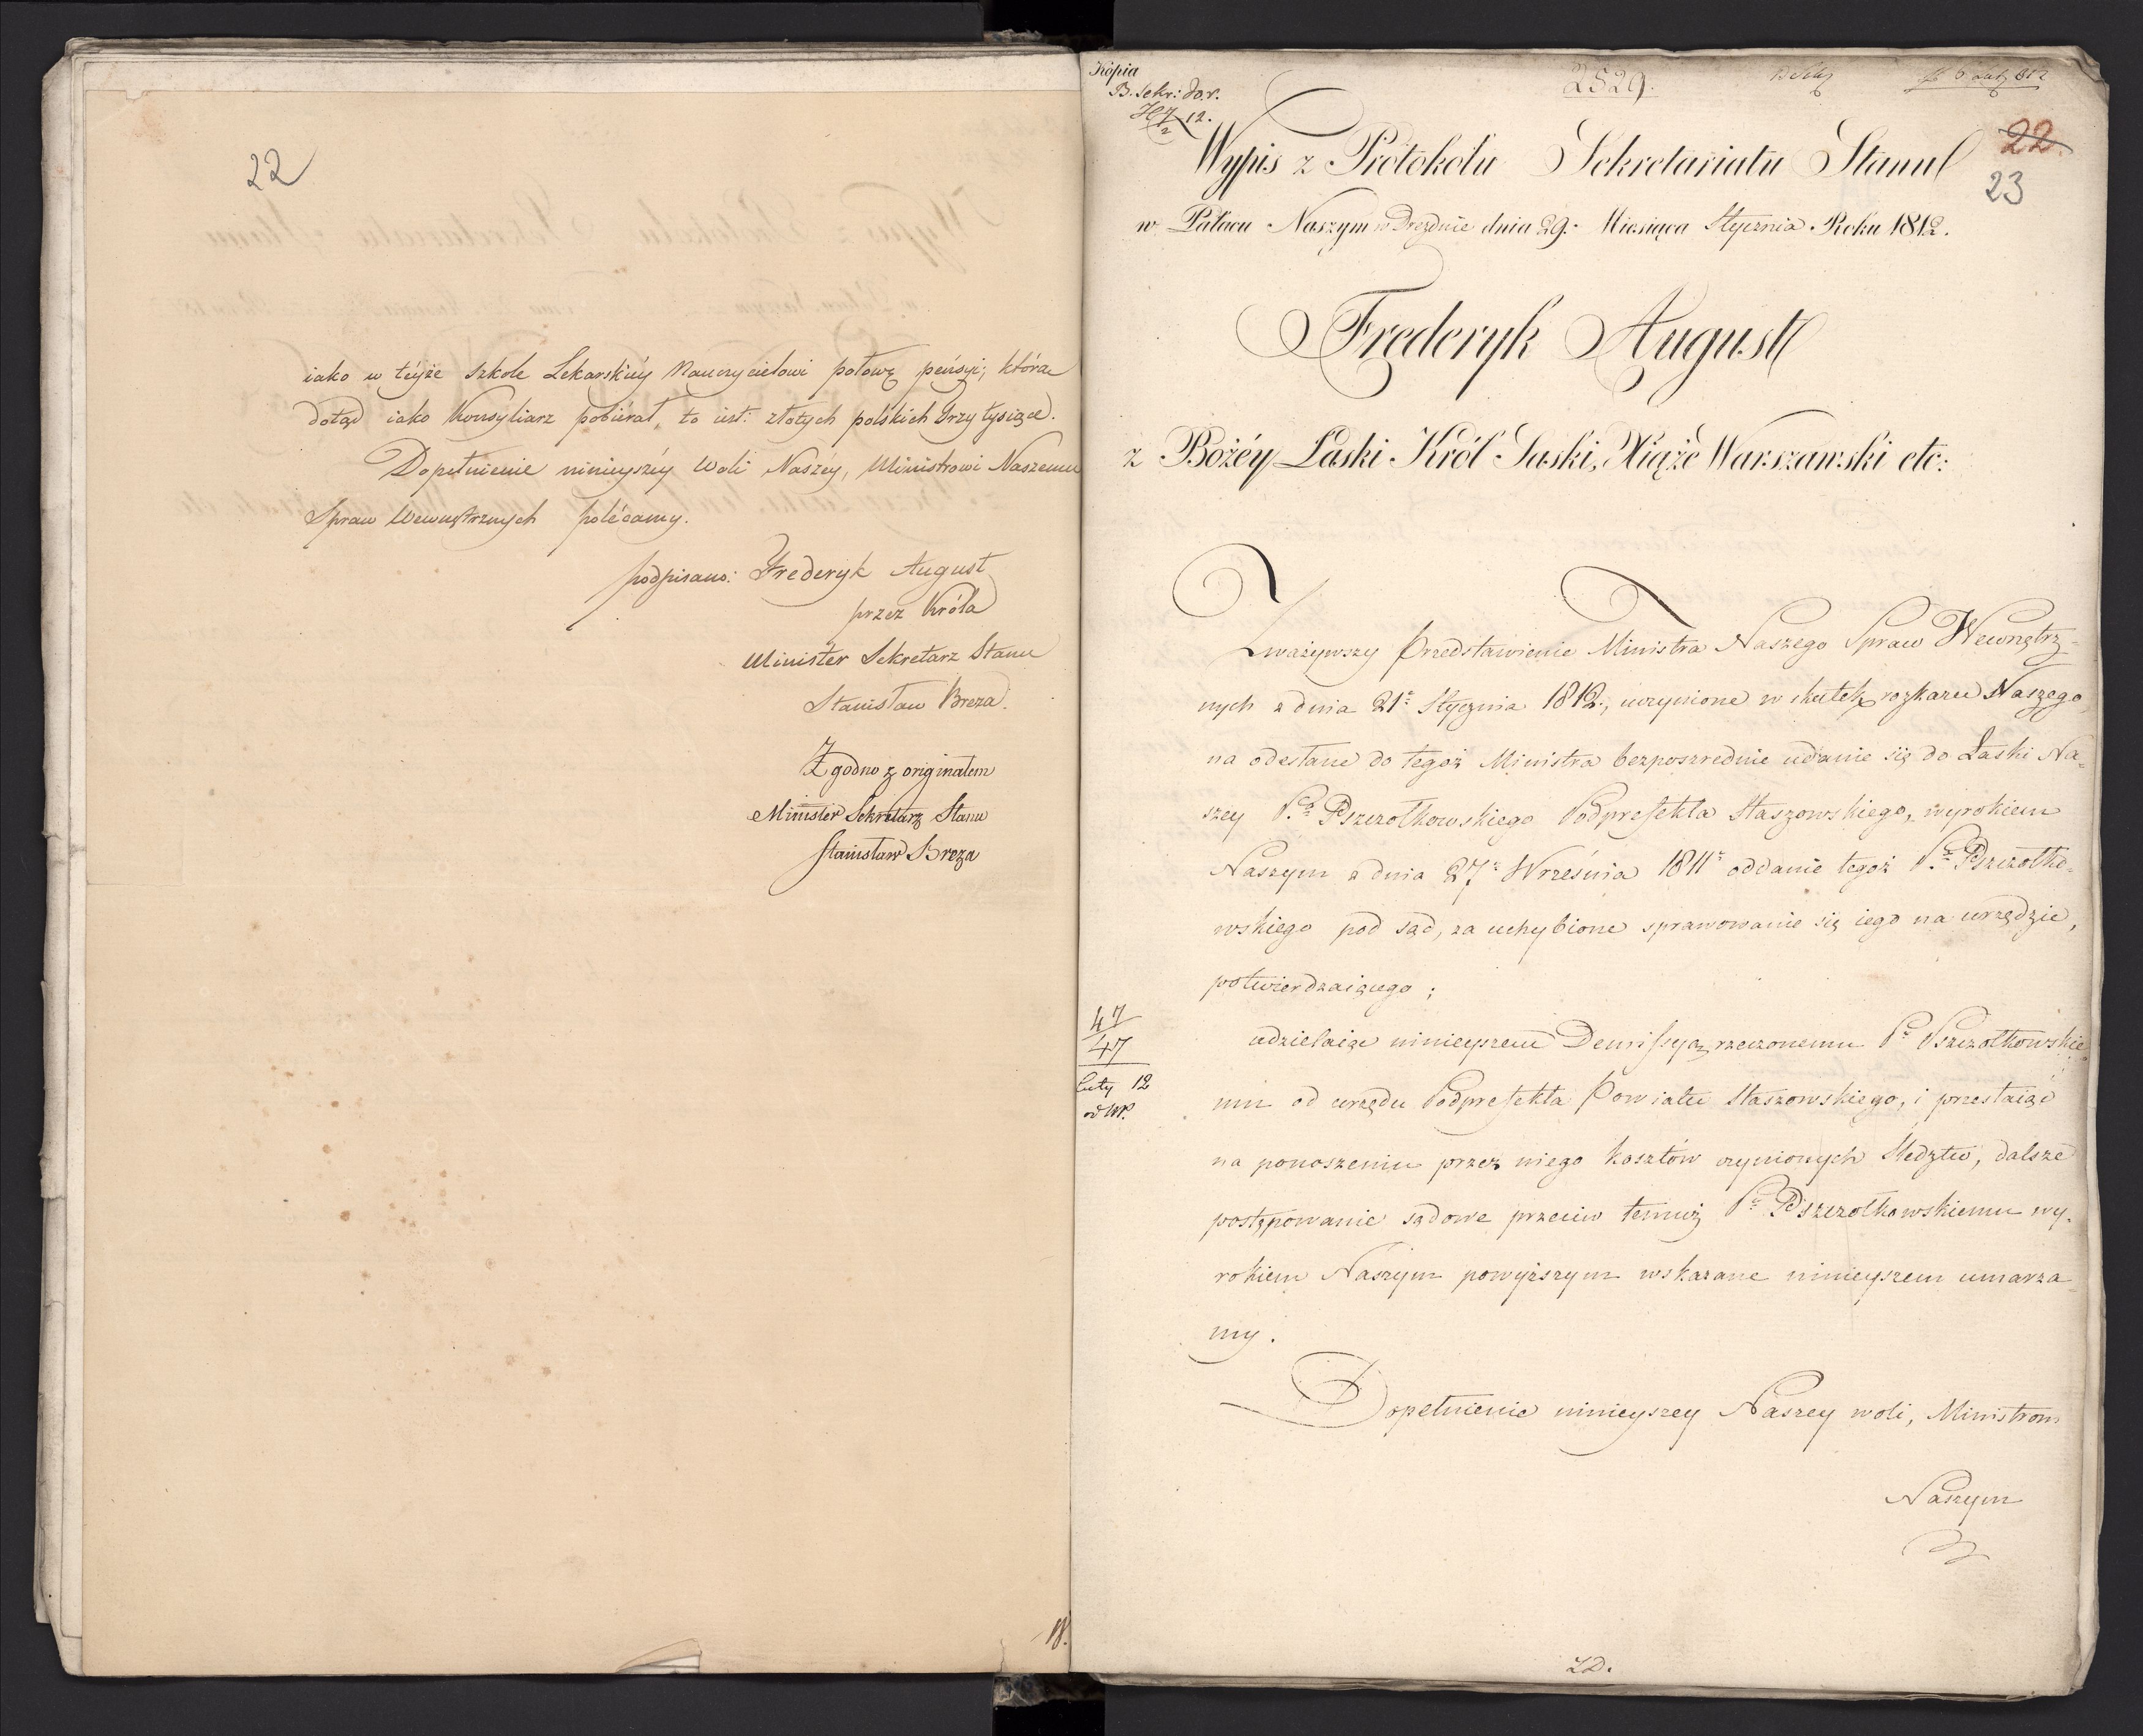 22
iako w téyże Szkole Lekarskiéy Nauczycielowi połowę pensyi, którą
dotąd iako Konsyliarz pobiérał, to iest: złotych polskich trzy tysiące.
Dopełnienie ninieyszéy Woli Naszéy, Ministrowi Naszemu
Spraw Wewnętrznych polécamy.
podpisano: Frederyk August
przez Króla
Minister Sekretarz Stanu
Stanisław Breza.
Zgodno z originałem
Minister Sekretarz Stanu
Stanisław Breza
18.
Kopia
B. Sekr: do.r.
2529.
22.
23
Wypis z Protokołu Sekretariatu Stanu
w Pałacu Naszym w Dreznie dnia 29. Miesiąca Stycznia Roku 1812.
Frederyk August
z Bożéy Łaski Król Saski, Xiąże Warszawski etc:
Zważywszy Przedstawienie Ministra Naszego Spraw Wewnętrz=
nych z dnia 21. Stycznia 1812., uczynione w skutek rozkazu Naszego
na odesłane do tegoż Ministra bezpośrednie udanie się do Łaski Na=
szey Pa Pszczołkowskiego Podprefekta Staszowskiego, wyrokiem
Naszym z dnia 27. Września 1811 oddanie tegoż Pa Pszczołko=
wskiego pod sąd, za uchybione sprawowanie się iego na urzędzie,
potwierdzaiącego;
udzielaiąc ninieyszem Demissyą rzeczonemu Pu Pszczołkowskie=
mu od urzędu Podprefekta Powiatu Staszowskiego, i przestaiąc
na ponoszeniu przez niego kosztów czynionych Śledztw, dalsze
postępowanie sądowe przeciw temuż Pu Pszczołkowskiemu wy=
rokiem Naszym powyższym wskazane ninieyszem umarza=
my.
Dopełnienie ninieyszey Naszey woli, Ministrom
Naszym
47
47
Luty 12
od WP.